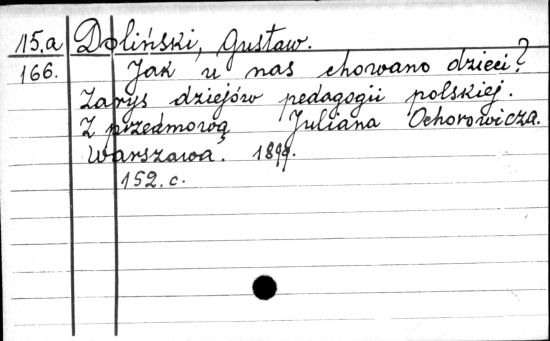 15.a Doliński, Gustaw.
166. Jak u nas chowano dzieci?
Zarys dziejów pedagogii polskiej.
Z przedmową Juliana Ochorowicza.
Warszawa. 1899.
152. c.